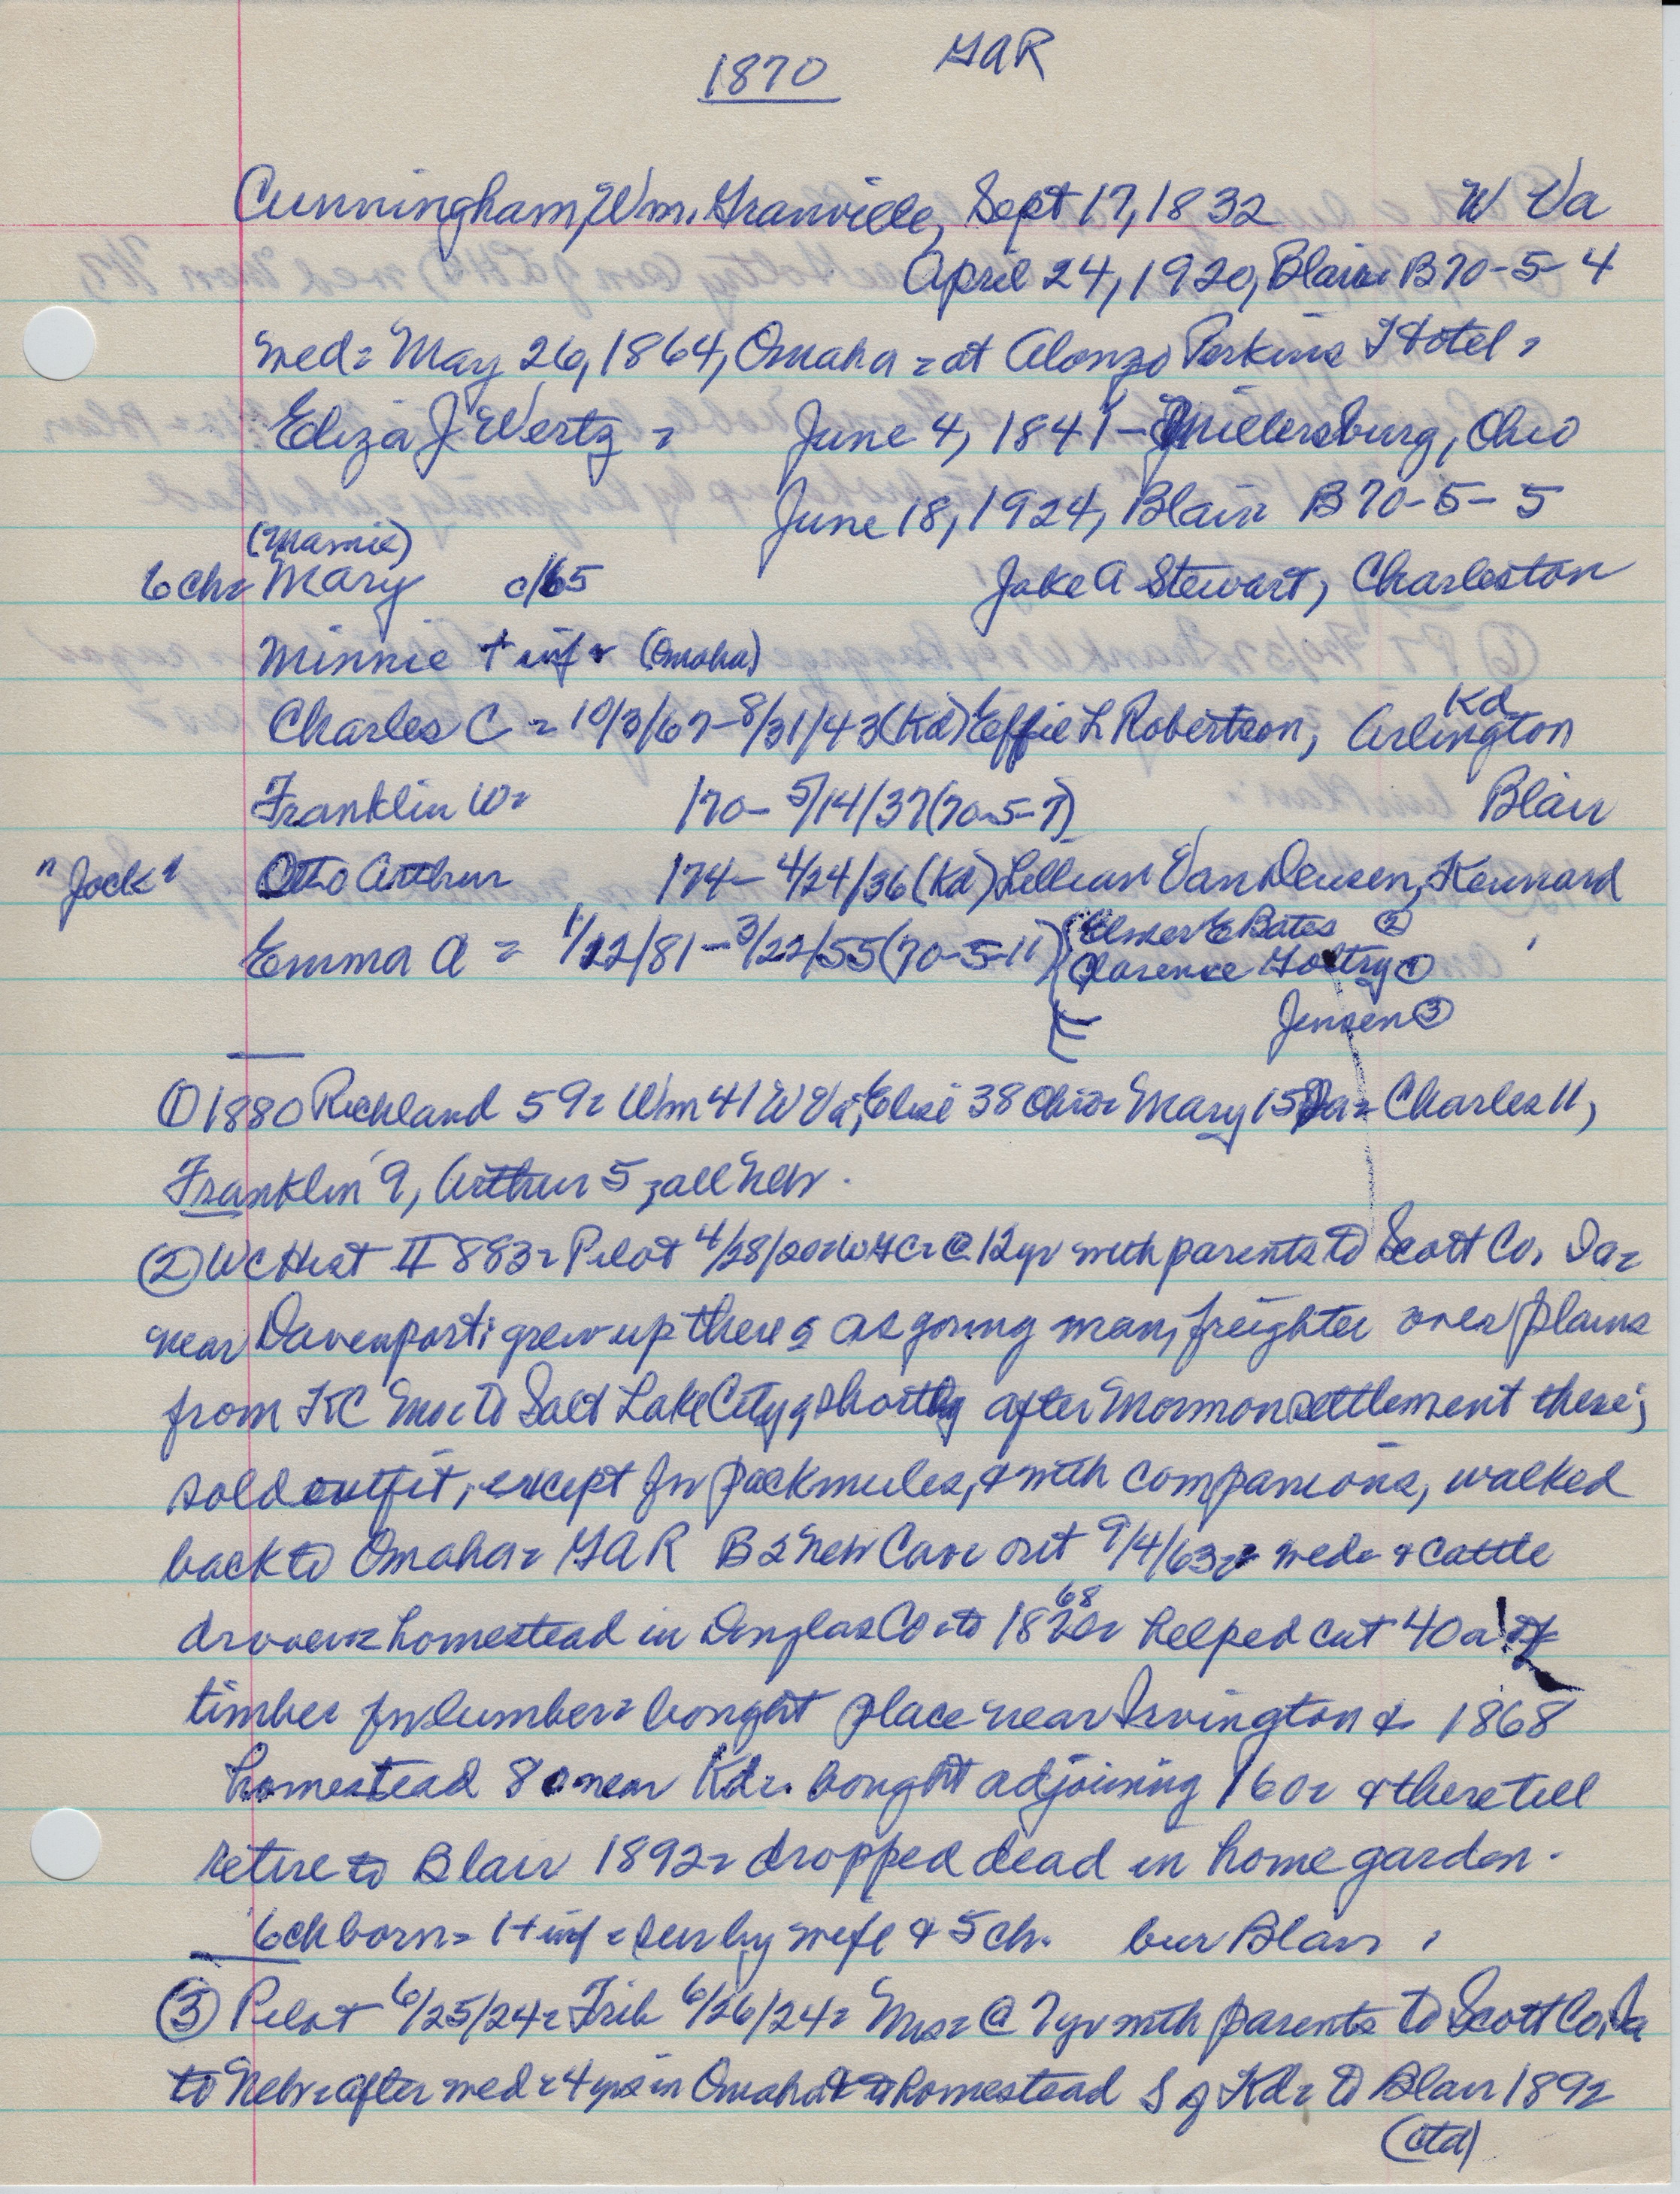 1870 GAR
Cunningham, Wm. Granville, Sept 17, 1832 W Va
April 24, 1920, Blair B70-5-4
wed = May 26, 1864, Omaha = at Alonzo Perkins Hotel =
Eliza J Wertz = June 4, 1841 - Millersburg, Ohio
June 18, 1924, Blair B70-5-5
(Mamie)
6 ch = Mary c/65 Jake A Stewart, Charleston
Minnie + inf = (Omaha)
Charles C = 10/3/67-8/31/43 (Kd) Effie L Robertson, Arlington Kd
Franklin W = /70 - 5/14/37 (70-5-7) Blair
"Jock" Otto Arthur /74 - 4/24/36 (Kd) Lillian Van Deusen, Kennard
Emma A = 1/22/81 - 3/22/55 (70-5-11) Elmer E Bates ②
Clarence Goltry ①
Jensen ③
① 1880 Richland 59 = Wm 41 W Va, Elisi 38 Ohio = Mary 15 = Charles 11,
Franklin 9, Arthur 5, all Nebr.
② WCHist II 883 = Pilot 4/28/20 = WGC = @ 12 yr with parents to Scott Co, Ia =
near Davenport; grew up there = as young man, freighter over plains
from KC Mo = to Salt Lake City, shortly after Mormon settlement there;
sold outfit, except for packmules, & with companions, walked
back to Omaha = GAR B 2 Nebr Cav out 9/4/63 = wed = & cattle
drover = homestead in Douglas Co = to 1868 = helped cut 40 a of
timber for lumber = bought place near Irvington & 1868
homestead 80 near Kd = bought adjoining 160 = & there till
retire to Blair 1892 = dropped dead in home garden.
6 ch born = 1 + inf = sur by wife & 5 ch. bur Blair
③ Pilot 6/25/24 = Trib 6/26/24 = Mrs = @ 7 yr with parents to Scott Co, Ia
to Nebr = after wed = 4 yrs in Omaha & to homestead S of Kd = to Blair 1892
(ctd)